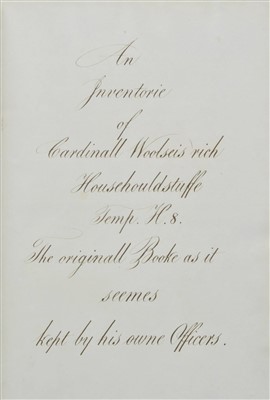 An
Inventorie
of
Cardinall Woolseis rich
Househouldstuffe
Temp. H. 8.
The originall Booke as it
seemes
kept by his owne Officers.